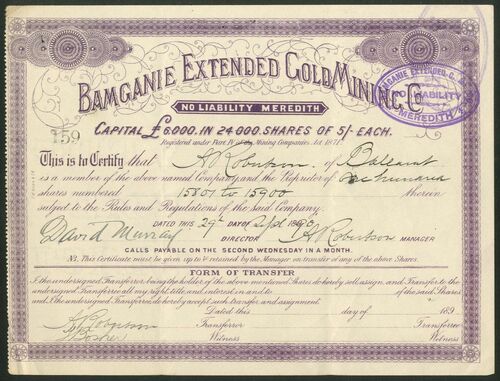 BAMGANIE EXTENDED GOLD MINING Co
NO LIABILITY MEREDITH
BAMGANIE EXTENDED G. M. Co
NO LIABILITY
MEREDITH
CAPITAL £6000. IN 24000. SHARES OF 5/- EACH.
159
Registered under Part IV of the Mining Companies Act 1871
This is to Certify that A Robertson of Ballarat
is a member of the above named Company and the Proprietor of One hundred
shares numbered 15801 to 15900 Wherein
subject to the Rules and Regulations of the said Company.
DATED THIS 29th DAY OF Sept 1890
David Murray DIRECTOR A Robertson MANAGER
CALLS PAYABLE ON THE SECOND WEDNESDAY IN A MONTH.
NB. This Certificate must be given up to & retained by the Manager on transfer of any of the above Shares.
FORM OF TRANSFER
I, the undersigned Transferror, being the holder of above mentioned Shares do hereby sell, assign, and Transfer to the
undersigned Transferree all my right, title, and interest in and to of the said Shares
and I, the undersigned Transferree, do hereby accept such transfer, and assignment.
Dated this day of 189
A Robertson Transferror Transferree
Witness Witness